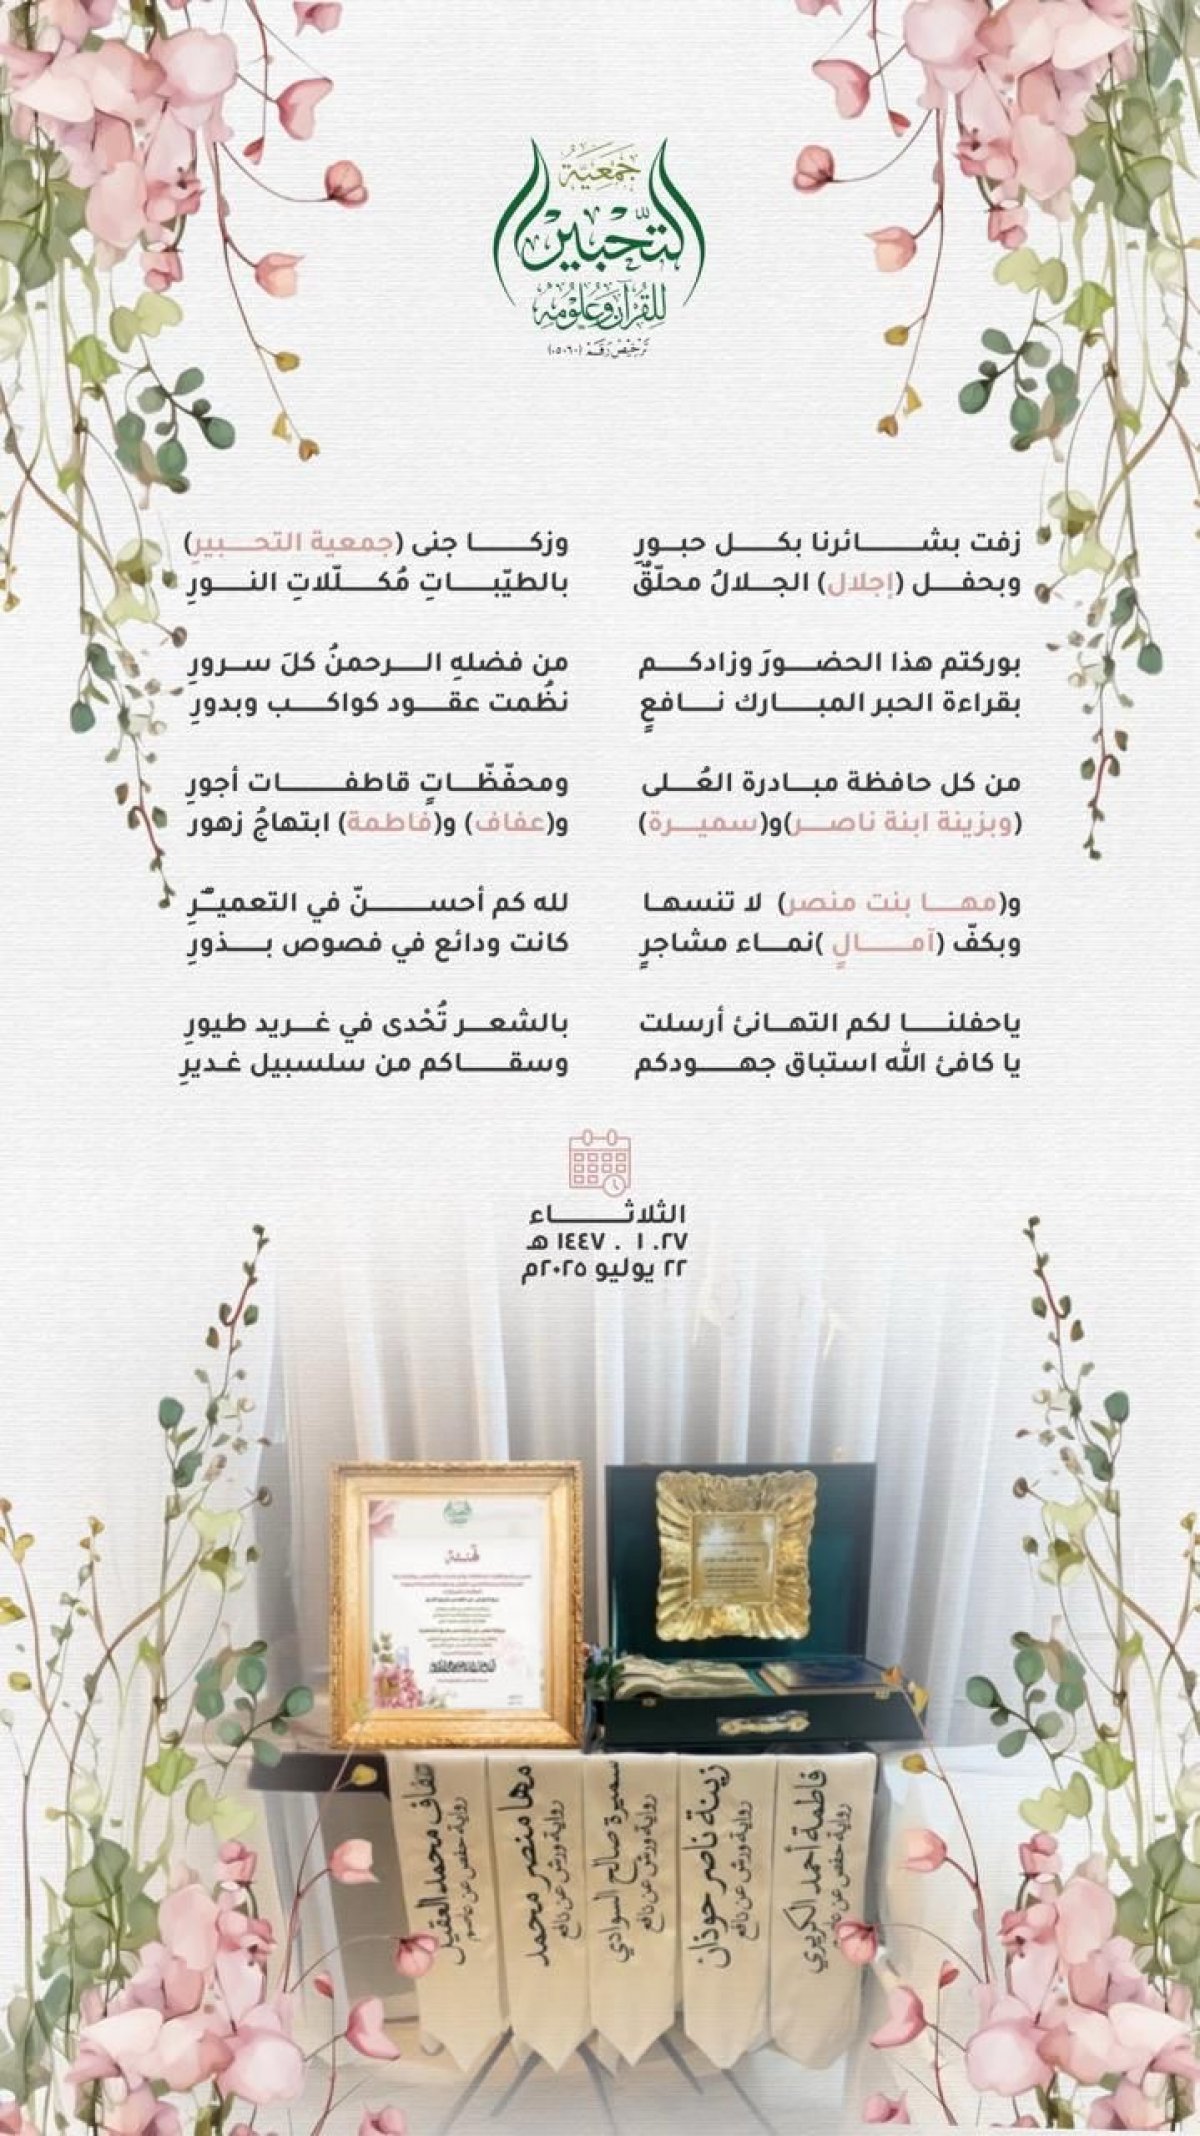 جمعية
التحبير
للقرآن وعلومه
ترخيص رقم (٠٥٠٦٠)
زفت بشائرنا بكل حبورِ وزكا جنى (جمعية التحبيرِ)
وبحفل (إجلال) الجلالُ محلّقٌ بالطيّباتِ مُكلّلاتِ النورِ
بوركتم هذا الحضورَ وزادكم من فضلهِ الرحمنُ كلَ سرورِ
بقراءة الحبر المبارك نافعٍ نظُمت عقود كواكب وبدورِ
من كل حافظة مبادرة العُلى ومحفّظّاتٍ قاطفات أجورِ
(وبزينة ابنة ناصر)و(سميرة) و(عفاف) و(فاطمة) ابتهاجُ زهور
و(مها بنت منصر) لا تنسها لله كم أحسنّ في التعميرِ
وبكفّ (آمالٍ )نماء مشاجرٍ كانت ودائع في فصوص بذورِ
ياحفلنا لكم التهانئ أرسلت بالشعر تُحْدى في غريد طيورِ
يا كافئ الله استباق جهودكم وسقاكم من سلسبيل غديرِ
الثلاثاء
٢٧. ١ . ١٤٤٧ هـ
٢٢ يوليو ٢٠٢٥م
تهنئة
فاطمة أحمد الكريري
رواية حفص عن عاصم
زينة ناصر حوذان
رواية ورش عن نافع
سميرة صالح السوادي
رواية ورش عن نافع
مها منصر محمد
رواية ورش عن نافع
عفاف محمد العقيل
رواية حفص عن عاصم